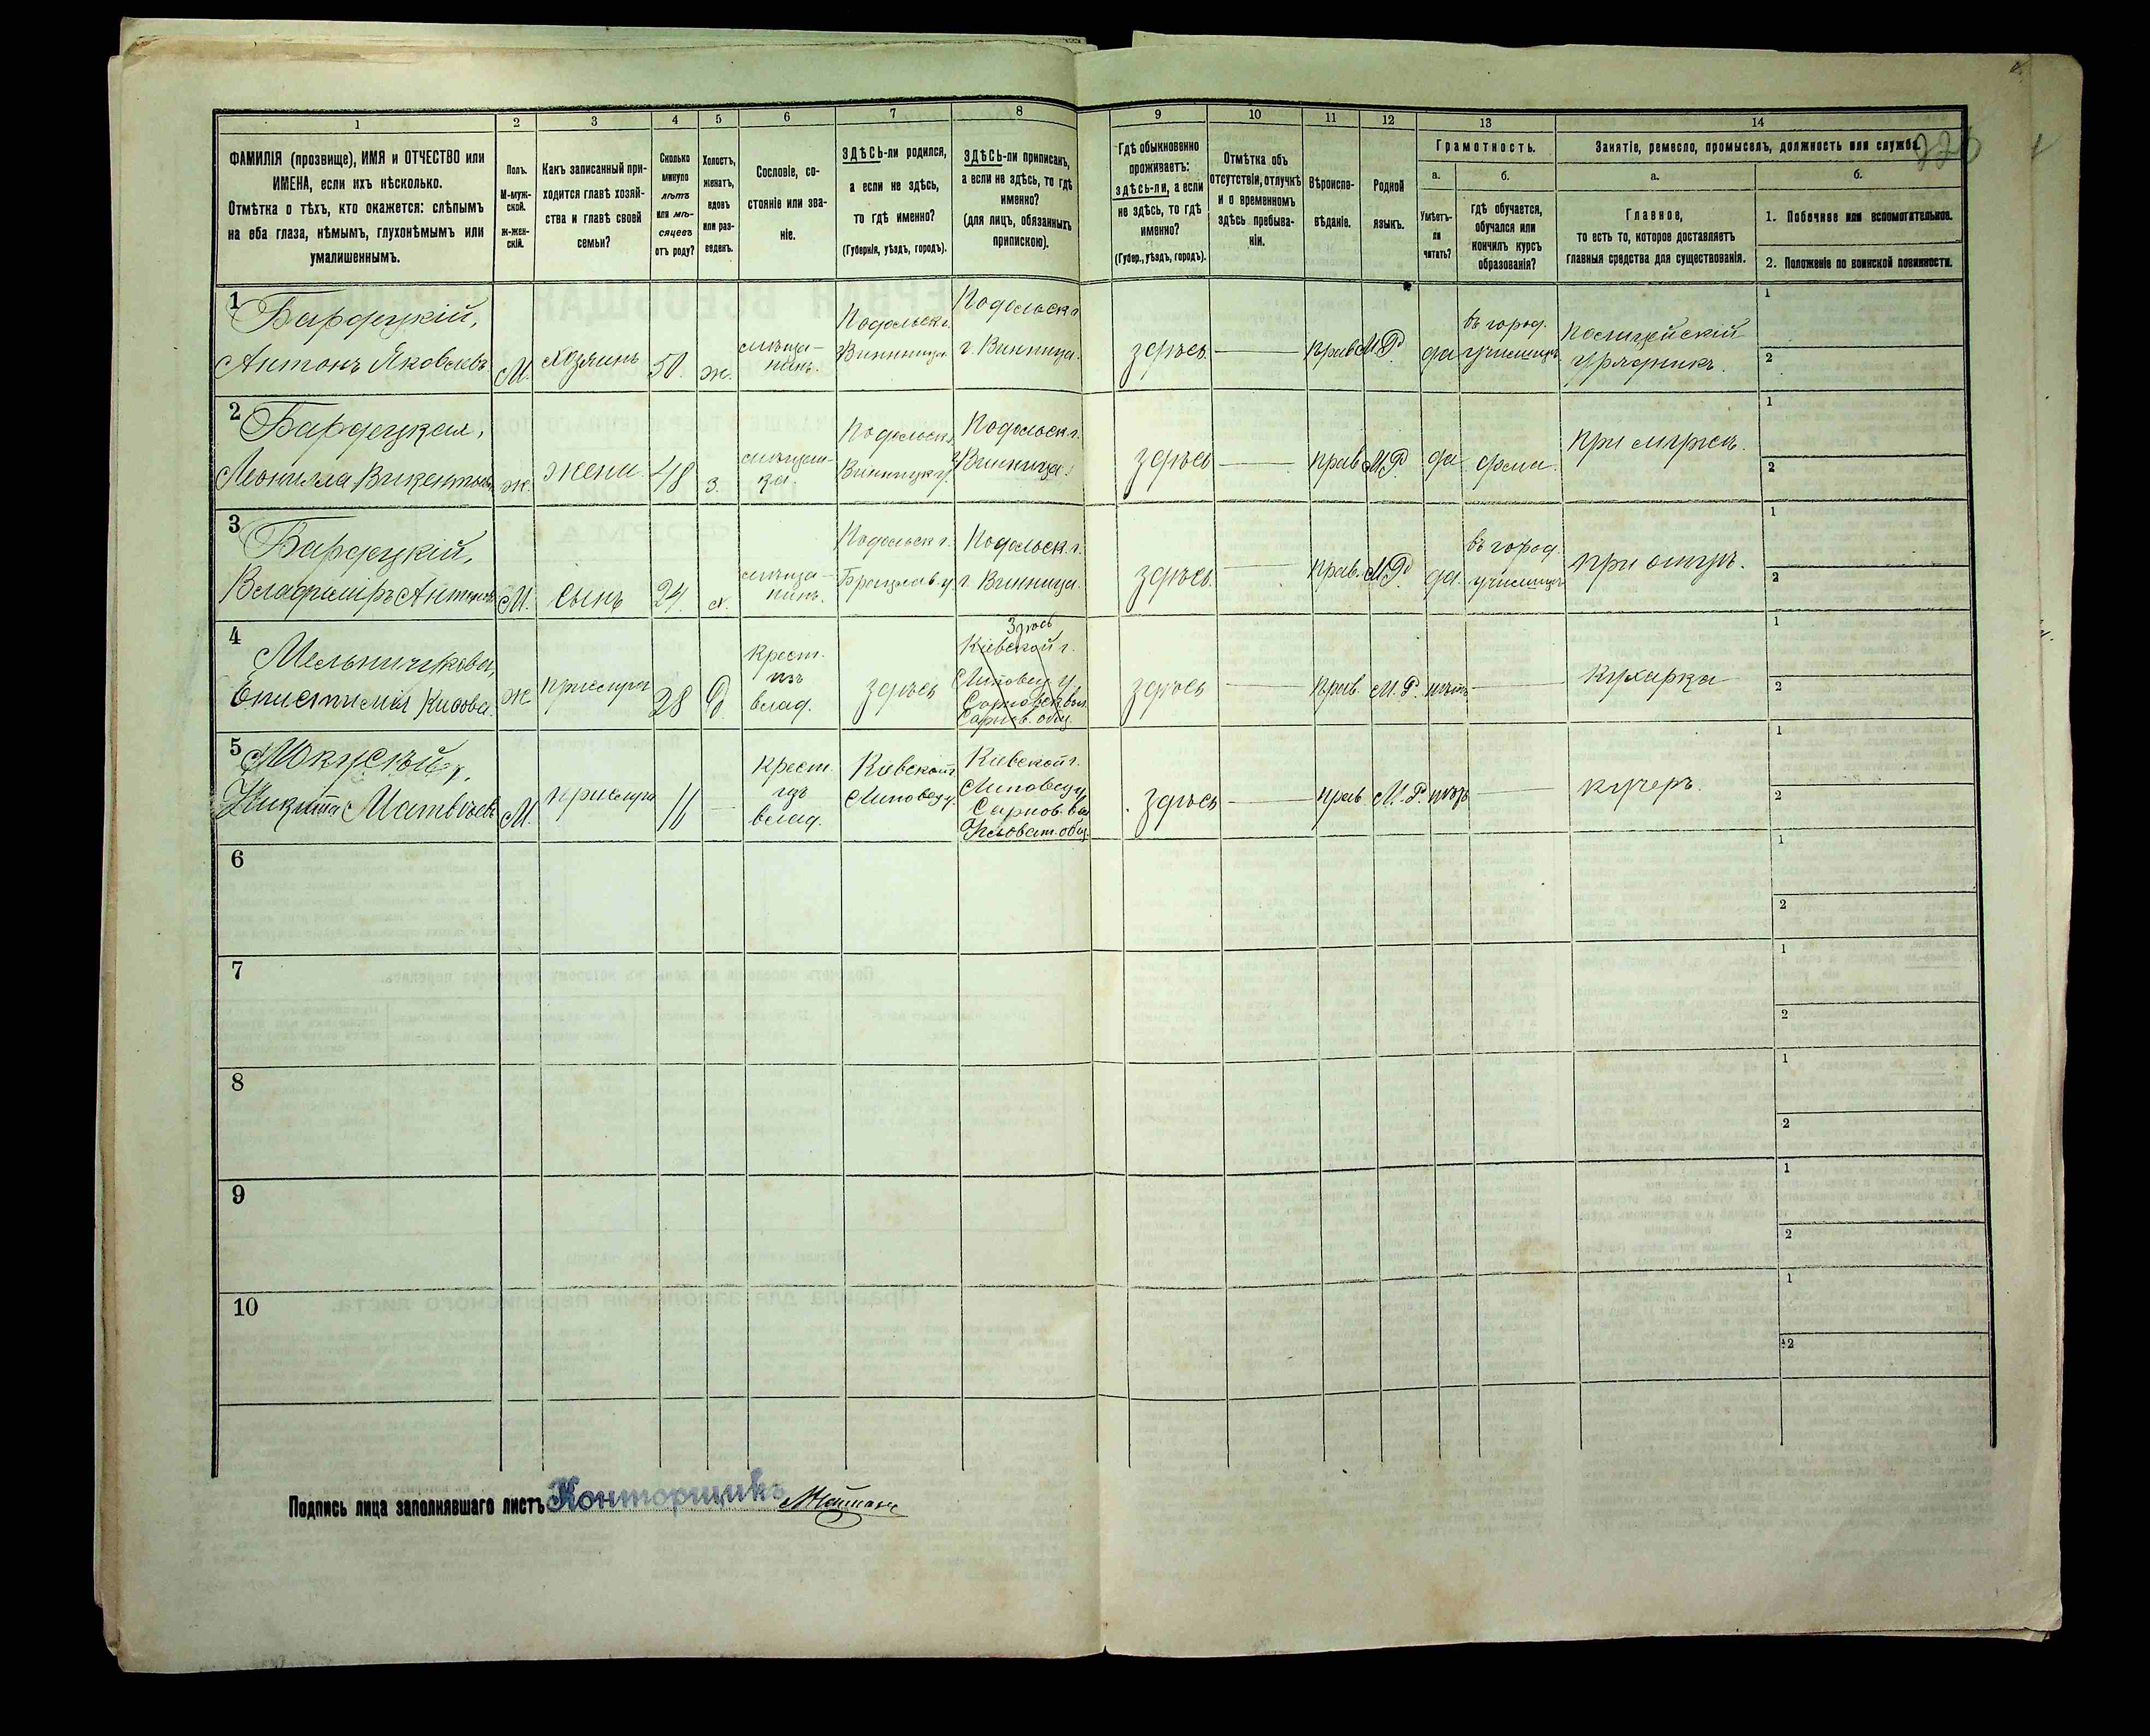 1 2 3 4 5 6 7 8 9 10 11 12 13 14
ФАМИЛІЯ (прозвище), ИМЯ и ОТЧЕСТВО или
ИМЕНА, если ихъ нѣсколько.
Отмѣтка о тѣхъ, кто окажется: слѣпымъ
на оба глаза, нѣмымъ, глухонѣмымъ или
умалишеннымъ.
Полъ.
М-муж-
ской.
ж-жен-
скій.
Какъ записанный при-
ходится главѣ хозяй-
ства и главѣ своей
семьи?
Сколько
минуло
лѣтъ
или мѣ-
сяцевъ
отъ роду?
Холостъ,
женатъ,
вдовъ
или раз-
веденъ.
Сословіе, со-
стояніе или зва-
ніе.
ЗДѢСЬ-ли родился,
а если не здѣсь,
то гдѣ именно?
(Губернія, уѣздъ, городъ).
ЗДѢСЬ-ли приписанъ,
а если не здѣсь, то гдѣ
именно?
(для лицъ, обязанныхъ
припискою).
Гдѣ обыкновенно
проживаетъ:
здѣсь-ли, а если
не здѣсь, то гдѣ
именно?
(Губер., уѣздъ, городъ).
Отмѣтка объ
отсутствіи, отлучкѣ
и о временномъ
здѣсь пребыва-
ніи.
Вѣроиспо-
вѣданіе.
Родной
языкъ.
Грамотность.
а.
Умѣетъ-
ли
читать?
б.
гдѣ обучается,
обучался или
кончилъ курсъ
образованія?
Занятіе, ремесло, промыселъ, должность или служба.
а.
Главное,
то есть то, которое доставляетъ
главныя средства для существованія.
б.
1. Побочное или вспомогательное.
2. Положеніе по воинской повинности.
1
Бардецкій,
Антонъ Яковлевъ
М.
хозяинъ
50.
ж.
мѣща-
нинъ.
Подольск г.
г. Винница.
Подольск г.
г. Винница.
здѣсь
прав.
М.Р.
да
въ город.
училищѣ
полицейскій
урядникъ.
1
2
2
Бардецкая,
Леонилла Викентьев
ж.
жена
48
з.
мѣщан-
ка.
Подольск г.
Винницк у.
Подольск г.
г. Винница.
здѣсь
прав.
М.Р.
да
дома.
при мужѣ.
1
2
3
Бардецкій,
Владиміръ Антоновъ
М.
сынъ
24.
х.
мѣща-
нинъ.
Подольск г.
Брацлав. у.
Подольск. г.
г. Винница.
здѣсь
прав.
М.Р.
да.
въ город.
училищѣ
при отцѣ.
1
2
4
Мельничкова,
Епистимія
ж
прислуга
28
крест.
изъ
влад.
здѣсь
Здѣсь
Кіевской г.
Липовец у.
здѣсь
прав.
М.Р.
нѣтъ
кухарка
1
2
5
Никита Матвѣевъ
М.
прислуга
крест.
изъ
влад.
Кіевской г.
Липовец у.
Кіевской г.
Липовец у.
здѣсь
прав
М.Р.
нѣтъ
кучеръ.
1
2
6
1
2
7
1
2
8
1
2
9
1
2
10
1
2
Подпись лица заполнявшаго листъ Конторщикъ